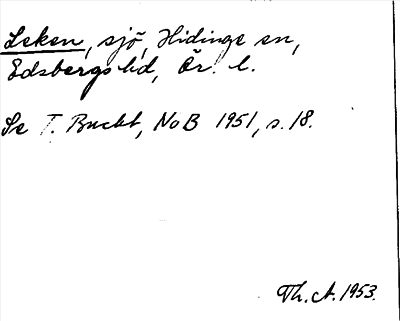 Leken, sjö, Hidinge sn,
Edsbergs hd, Ör. l.
Se T. Bucht, NoB 1951, s. 18.
Th. A. 1953.